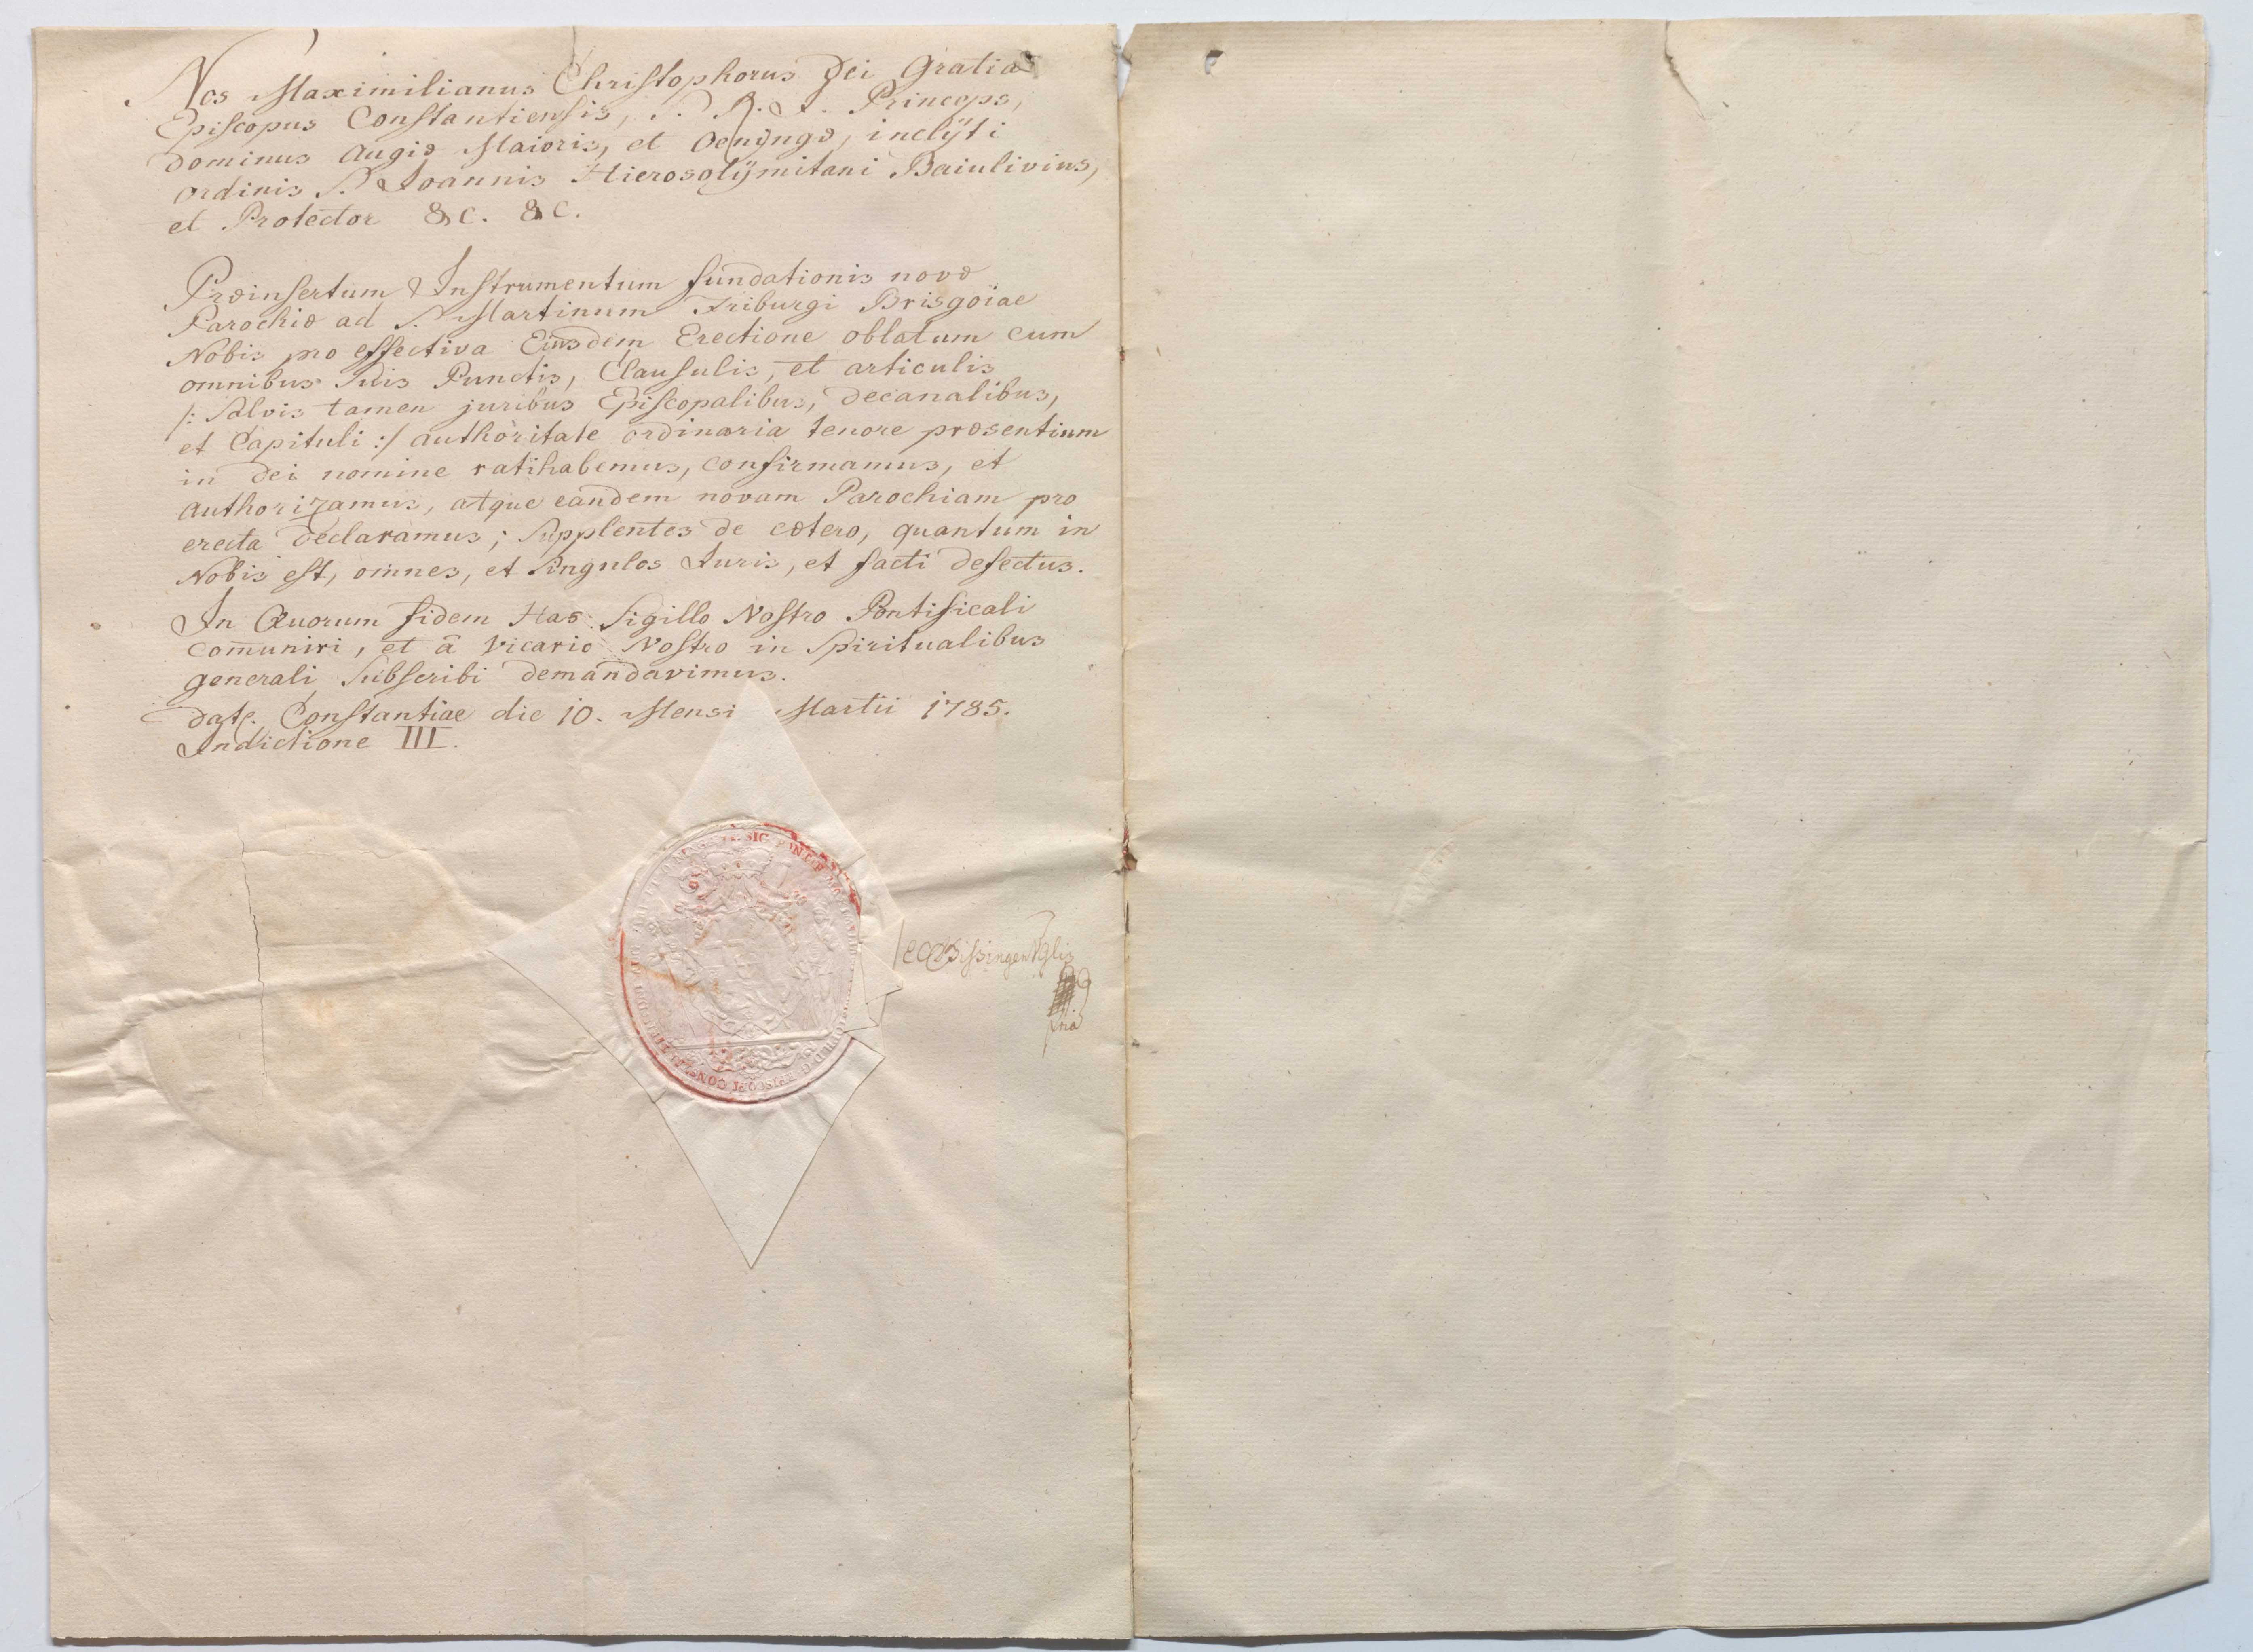 Nos Maximilianus Christophorus Dei Gratia
Episcopus Constantiensis, S. R. I. Princeps,
Dominus Augiæ Maioris, et Oenÿngæ, inclÿti
Ordinis S. Joannis Hierosolÿmitani Baiulivius,
et Protector &c. &c.
Præinsertum Instrumentum fundationis novæ
Parochiæ ad S. Martinum Friburgi Brisgoiae
Nobis pro effectiva Eiusdem Erectione oblatum cum
omnibus suis Punctis, Clausulis, et articulis
/: Salvis tamen juribus Episcopalibus, Decanalibus,
et Capituli :/ authoritate ordinaria tenore præsentium
in Dei nomine ratihabemus, confirmamus, et
authorizamus, atque eandem novam Parochiam pro
erecta declaramus; Supplentes de cætero, quantum in
Nobis est, omnes, et singulos Juris, et facti defectus.
In Quorum fidem Has Sigillo Nostro Pontificali
com̄uniri, et â Vicario Nostro in Spiritualibus
generali Subscribi demandavimus.
Constantiae die 10. Mensi Martii 1785.
Indictione III.
SIG PONTIF
EPISCOPI CONST